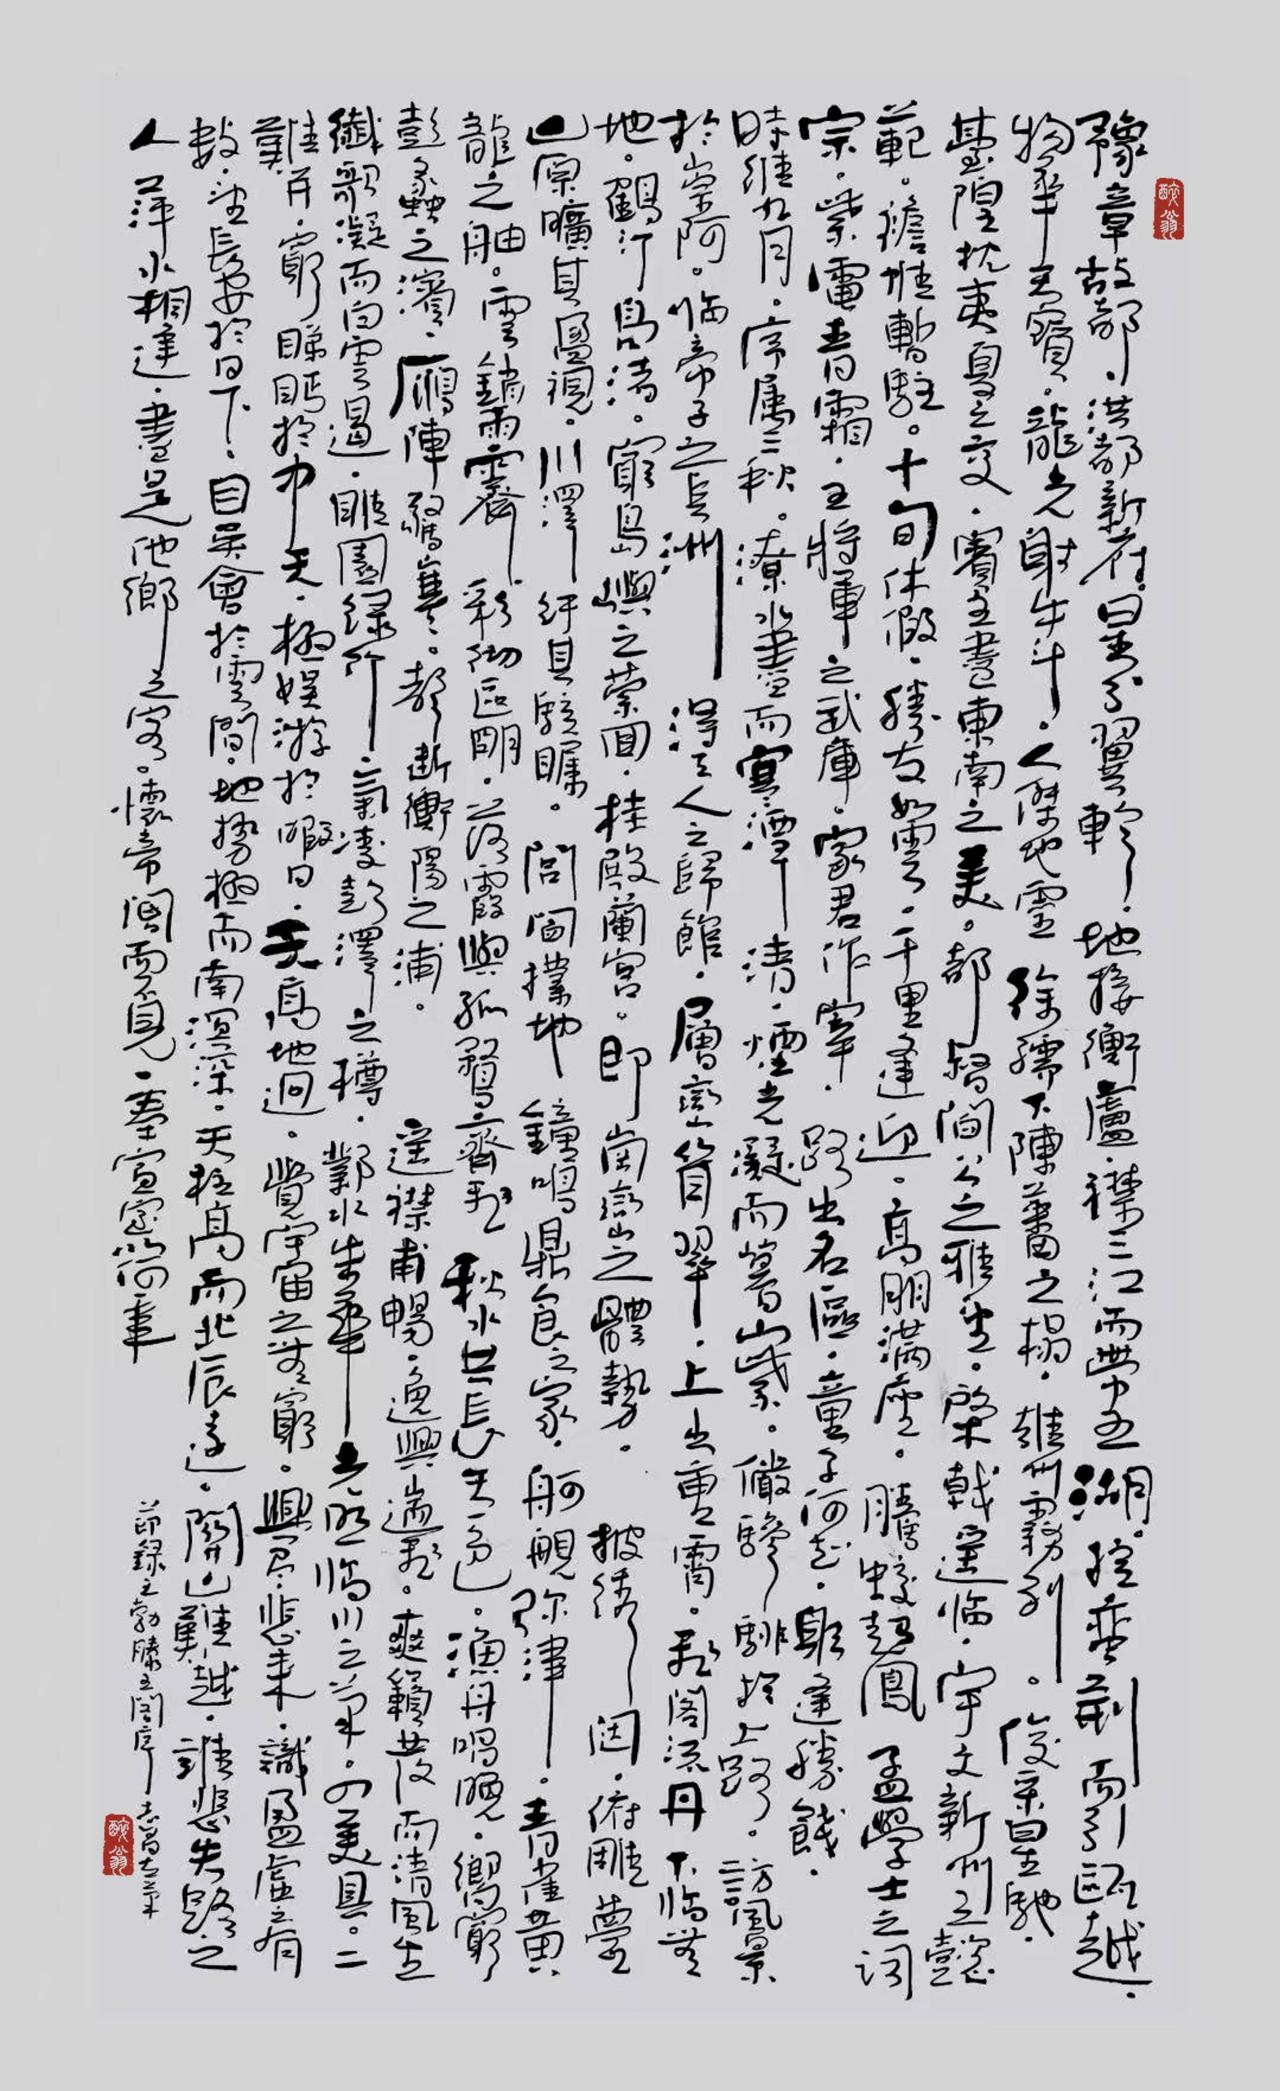 豫章故郡洪都新府星分翼軫地接衡廬襟三江而帶五湖控蠻荊而引甌越
物華天寶龍光射牛斗人傑地靈徐孺下陳蕃之榻雄州霧列俊寀星馳
臺隍枕夷夏之交賓主盡東南之美都督閻公之雅望棨戟遙臨宇文新州之懿
範襜帷暫駐十旬休假勝友如雲千里逢迎高朋滿座騰蛟起鳳孟學士之詞
宗紫電青霜王將軍之武庫家君作宰路出名區童子何知躬逢勝餞
時維九月序属三秋潦水盡而寒潭清煙光凝而暮山紫儼驂騑於上路訪風景
於崇阿临帝子之長洲得天人之歸館層巒聳翠上出重霄飛閣流丹下臨無
地鶴汀鳧渚窮島嶼之縈回桂殿蘭宮即崗巒之體勢披繡闼俯雕甍
山原曠其盈視川澤紆其駭矚閭閻撲地鐘鳴鼎食之家舸艦弥津青雀黄
龍之舳雲銷雨霽彩徹區明落霞與孤鶩齊飛秋水共長天一色漁舟唱晚響窮
彭蠡之濱雁陣驚寒聲斷衡陽之浦遙襟甫暢逸興遄飛爽籟發而清風生
纖歌凝而白雲遏睢園绿竹氣凌彭澤之樽鄴水朱華光照臨川之筆四美具二
難并窮睇眄於中天極娱游於暇日天高地迥覺宇宙之無窮興盡悲来識盈虛之有
数望長安於日下目吴會於雲間地勢極而南溟深天柱高而北辰遠關山難越誰悲失路之
人萍水相逢盡是他鄉之客懷帝阍而不見奉宣室以何年
節録王勃滕王閣序
醉翁
醉翁